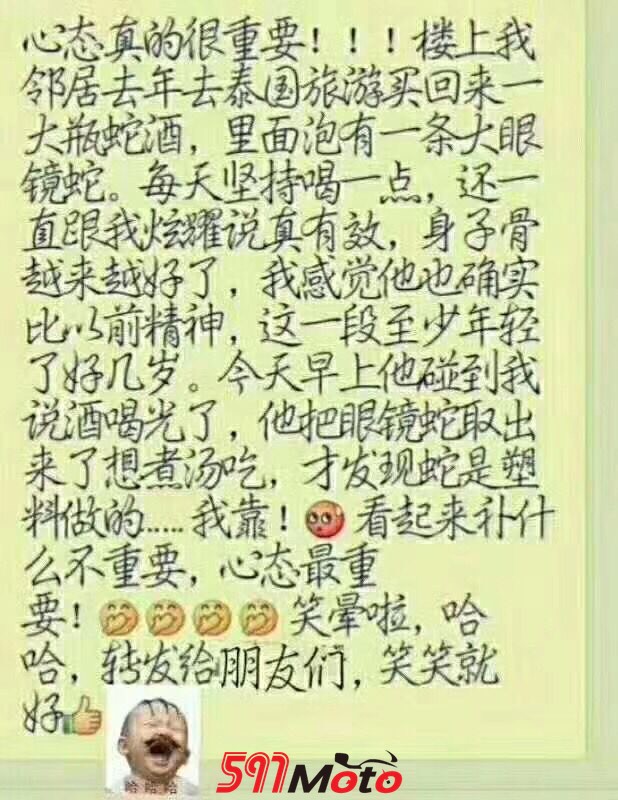 心态真的很重要！！！楼上我
邻居去年去泰国旅游买回来一
大瓶蛇酒，里面泡有一条大眼
镜蛇。每天坚持喝一点，还一
直跟我炫耀说真有效，身子骨
越来越好了，我感觉他也确实
比以前精神，这一段至少年轻
了好几岁。今天早上他碰到我
说酒喝光了，他把眼镜蛇取出
来了想煮汤吃，才发现蛇是塑
料做的.....我靠！看起来补什
么不重要，心态最重
要！笑晕啦，哈
哈，转发给朋友们，笑笑就
好
哈 哈 哈
597Moto